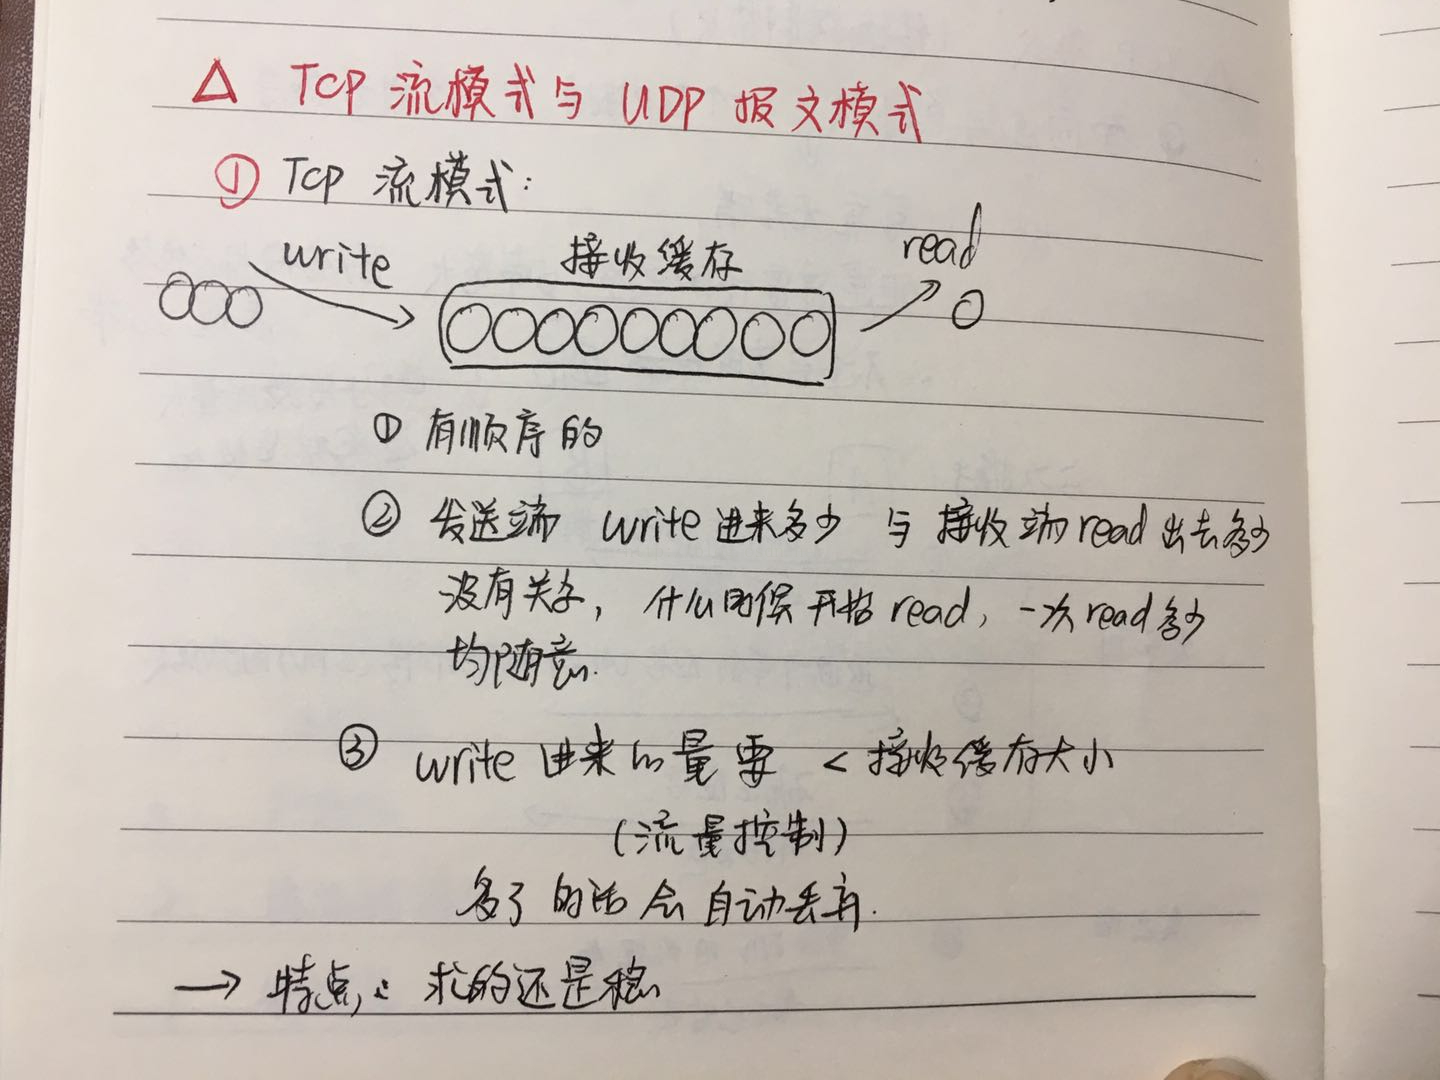 △ TCP 流模式与 UDP 报文模式
① TCP 流模式:
write 接收缓存 read
① 有顺序的
② 发送端 write 进来多少 与 接收端 read 出去多少
没有关系, 什么时候开始 read, 一次 read 多少
均随意.
③ write 进来的量要 < 接收缓存大小
(流量控制)
多了的话会自动丢弃.
→ 特点: 求的还是稳